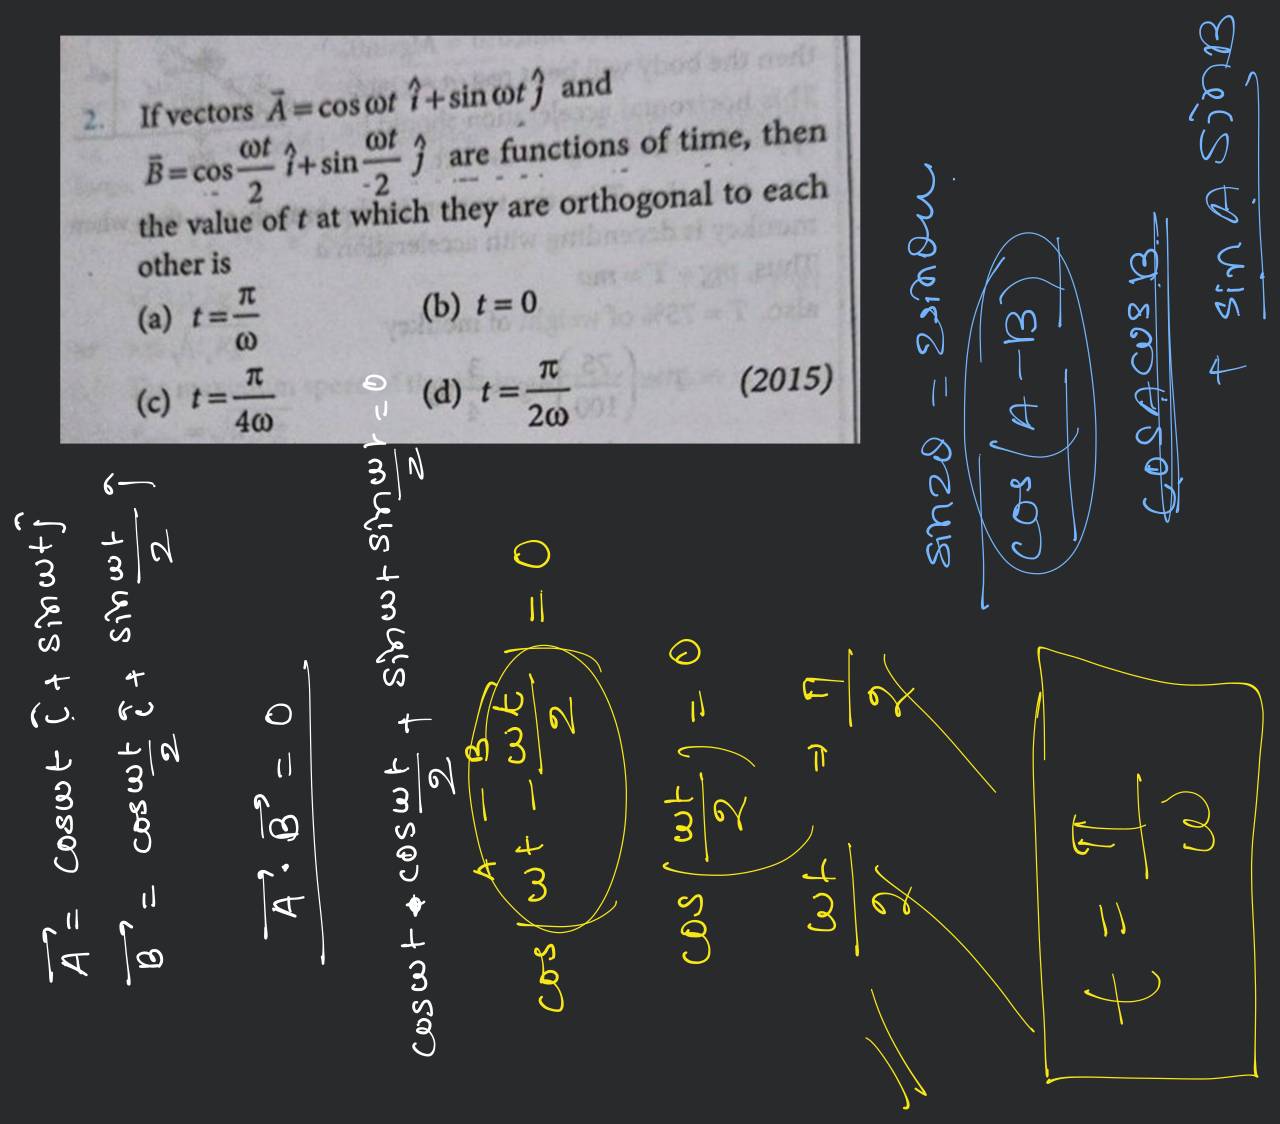 2. If vectors A⃗ = cos ωt î + sin ωt ĵ and
B⃗ = cos ωt/2 î + sin ωt/2 ĵ are functions of time, then
the value of t at which they are orthogonal to each
other is
(a) t = π/ω (b) t = 0
(c) t = π/4ω (d) t = π/2ω (2015)
A⃗ = cosωt î + sinωt ĵ
B⃗ = cos ωt/2 î + sin ωt/2 ĵ
A⃗ . B⃗ = 0
cosωt • cos ωt/2 + sinωt sin ωt/2 = 0
A - B
cos(ωt - ωt/2) = 0
cos(ωt/2) = 0
ωt/2 = π/2
t = π/ω
cos(A-B)
cosAcosB
+ sinA sinB